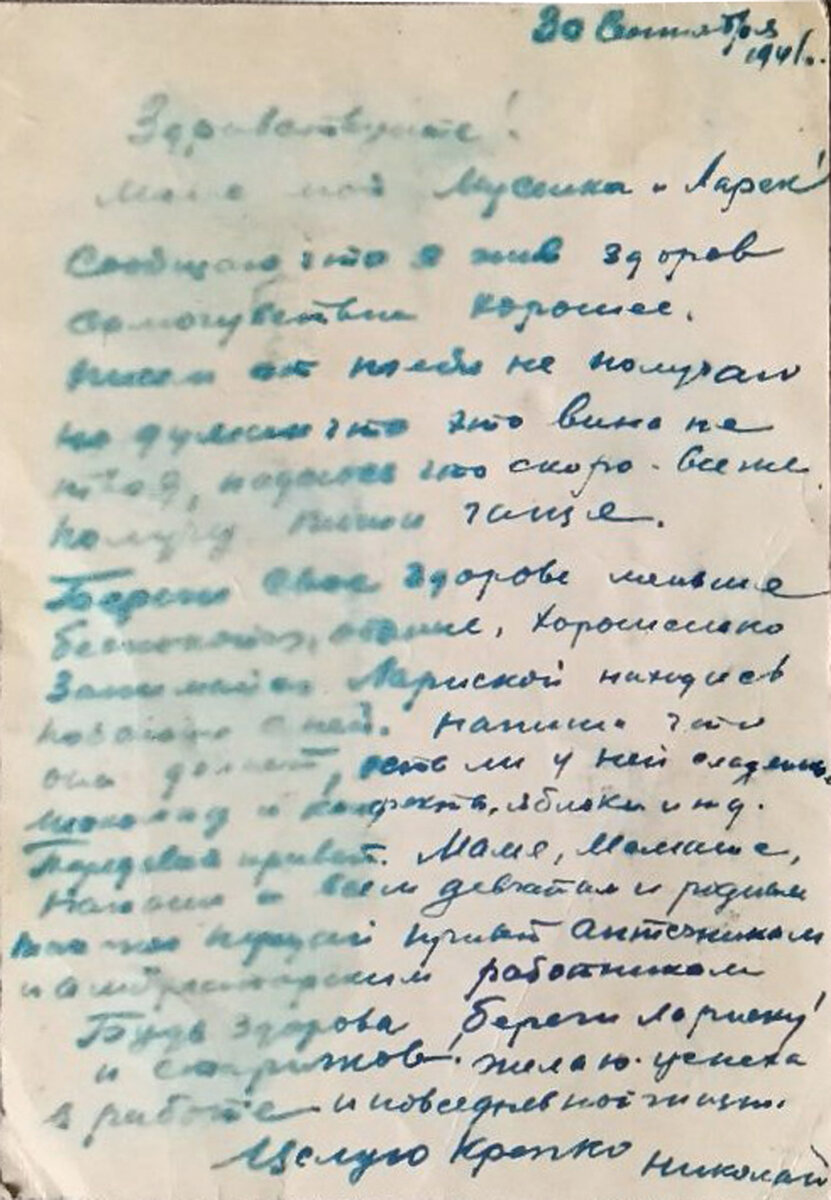 30 Сентября
1941г.
Здравствуйте!
мой Мусенка и Ларек!
Сообщаю что я жив здоров
самочувствие хорошее.
писем от тебя не получаю
но думаю что это вина не
твоя, надеюсь что скоро все же
получу пиши чаще.
Береги свое здоровье меньше
беспокойся, хорошенько
Занимайся Лариской находись
с ней. напиши что
она делает, есть ли у ней сладень
шоколад и конфекты, яблоки и т.д.
Передавай привет. Маме, Мамаше,
Папаше и всем девчатам и родным
также передай привет аптечникам
и амбулаторским работникам
Будь здорова береги Лариску!
и старичков! желаю успеха
в работе и повседневной жизни.
Целую Крепко Николай